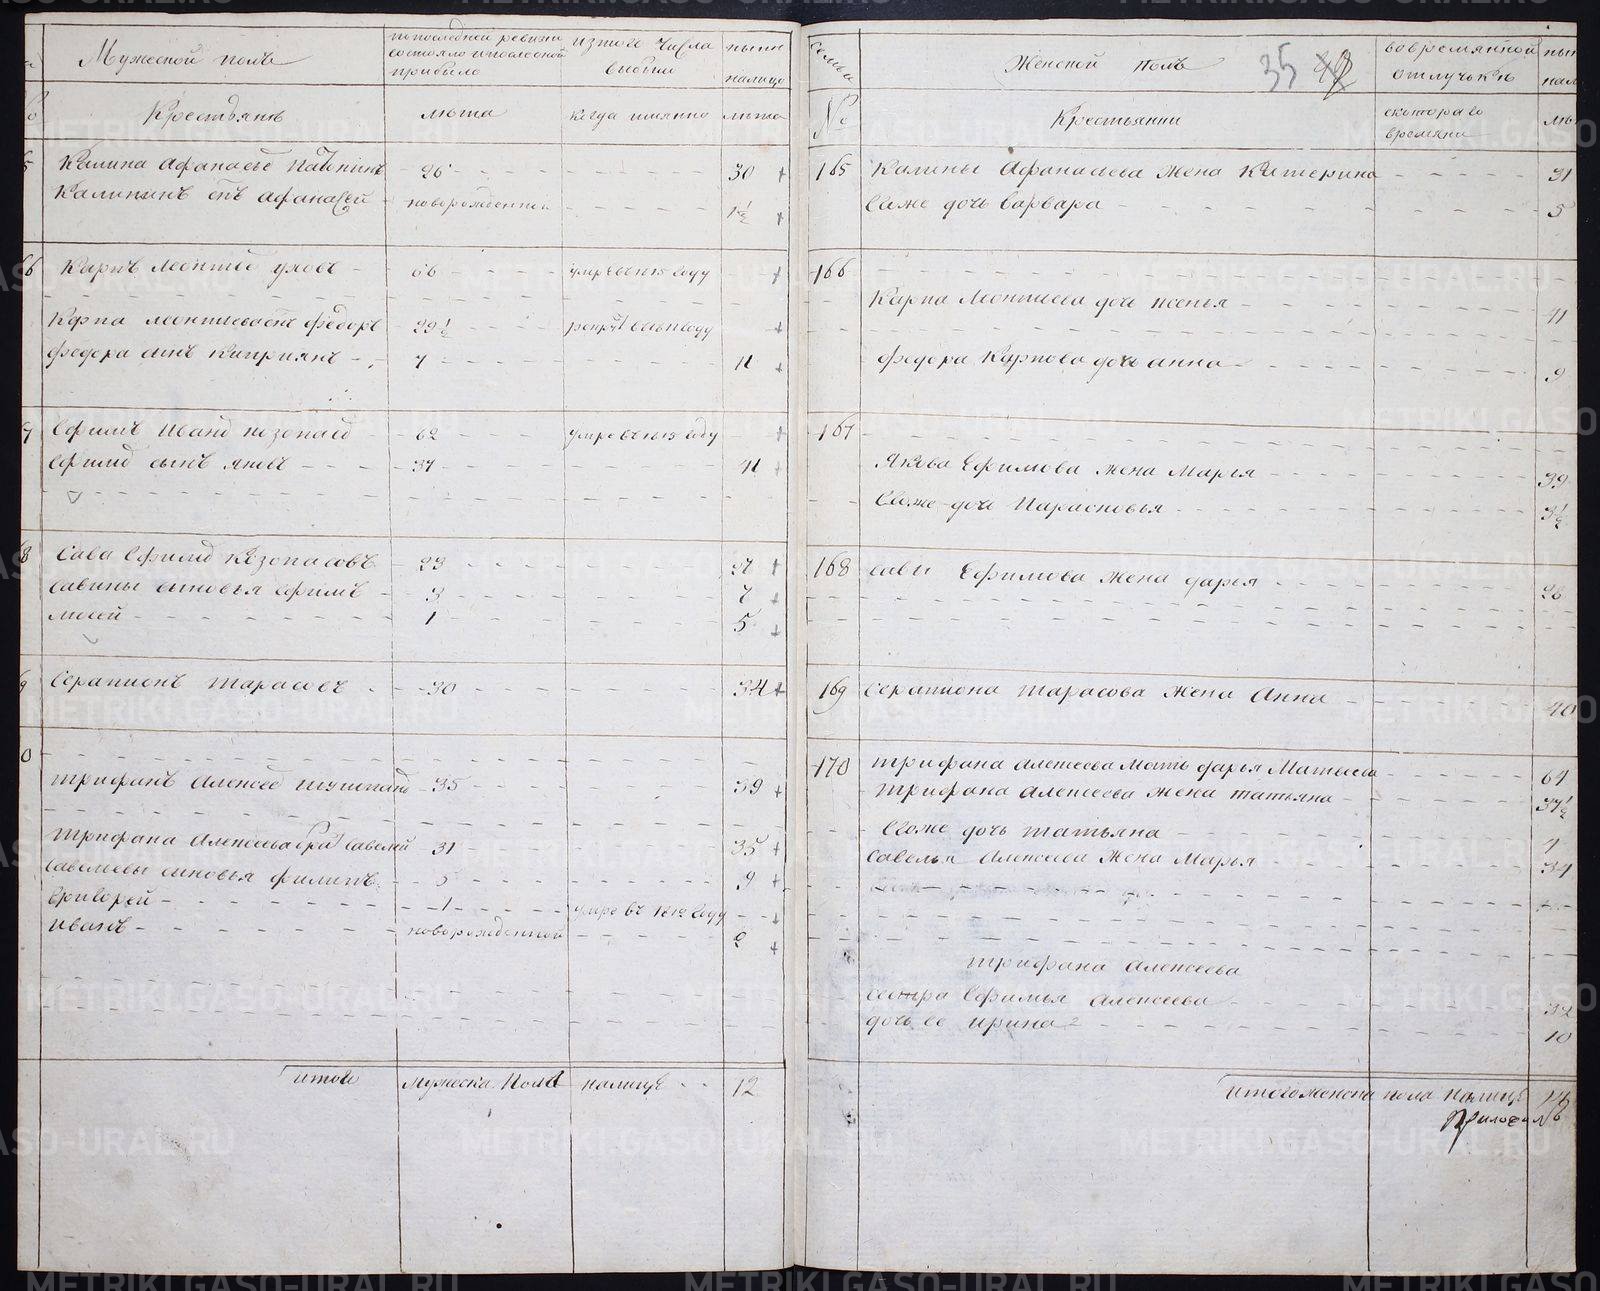 Мужеской полъ
по последней ревизи
состояло и после оной
прибыло
изтого числа
выбыли
ныне
налицо
Крестьянъ
лета
когда имянно
лета
Калина Афанасьев
26
30
Калининъ сынъ Афанасей
новорожденной
1½
Карпъ Леонтьев
66
умре въ 1815 году
Карпа Леонтьева сынъ Федоръ
29½
Федора сынъ Киприянъ
7
11
Ефимъ Иванов Козопасов
62
умре въ 1815 году
Ефимов сынъ Яковъ
37
41
Сава Ефимов Козопасовъ
23
27
Савины сыновья Ефимъ
3
7
Мосей
1
5
Серапионъ Тарасовъ
30
34
Трифанъ Алексеев
35
39
Трифана Алексеева брат Савелей
31
35
Савельевы сыновья Филипъ
5
9
Григорей
1
умре въ 1812 году
Иванъ
новорожденной
2
итого мужеска пола налице
12
семьи
Женской полъ
35
во временной
отлучькъ
№
Крестьянки
скоторого
времяни
165 Калины Афанасьева жена Катерина
31
Ево же дочь Варвара
5
166
Карпа Леонтьева дочь
41
Федора Карпова дочь Анна
9
167
Якова Ефимова жена Марья
39
Ево же дочь Парасковья
3½
168 Савы Ефимова жена Дарья
26
169 Серапиона Тарасова жена Анна
40
170 Трифана Алексеева мать Дарья Матвеева
64
Трифана Алексеева жена Татьяна
37½
Ево же дочь Татьяна
7
Савелья Алексеева жена Марья
34
Трифана Алексеева
сестра Ефимья Алексеева
32
дочь ее Ирина
10
итого женска пола налице